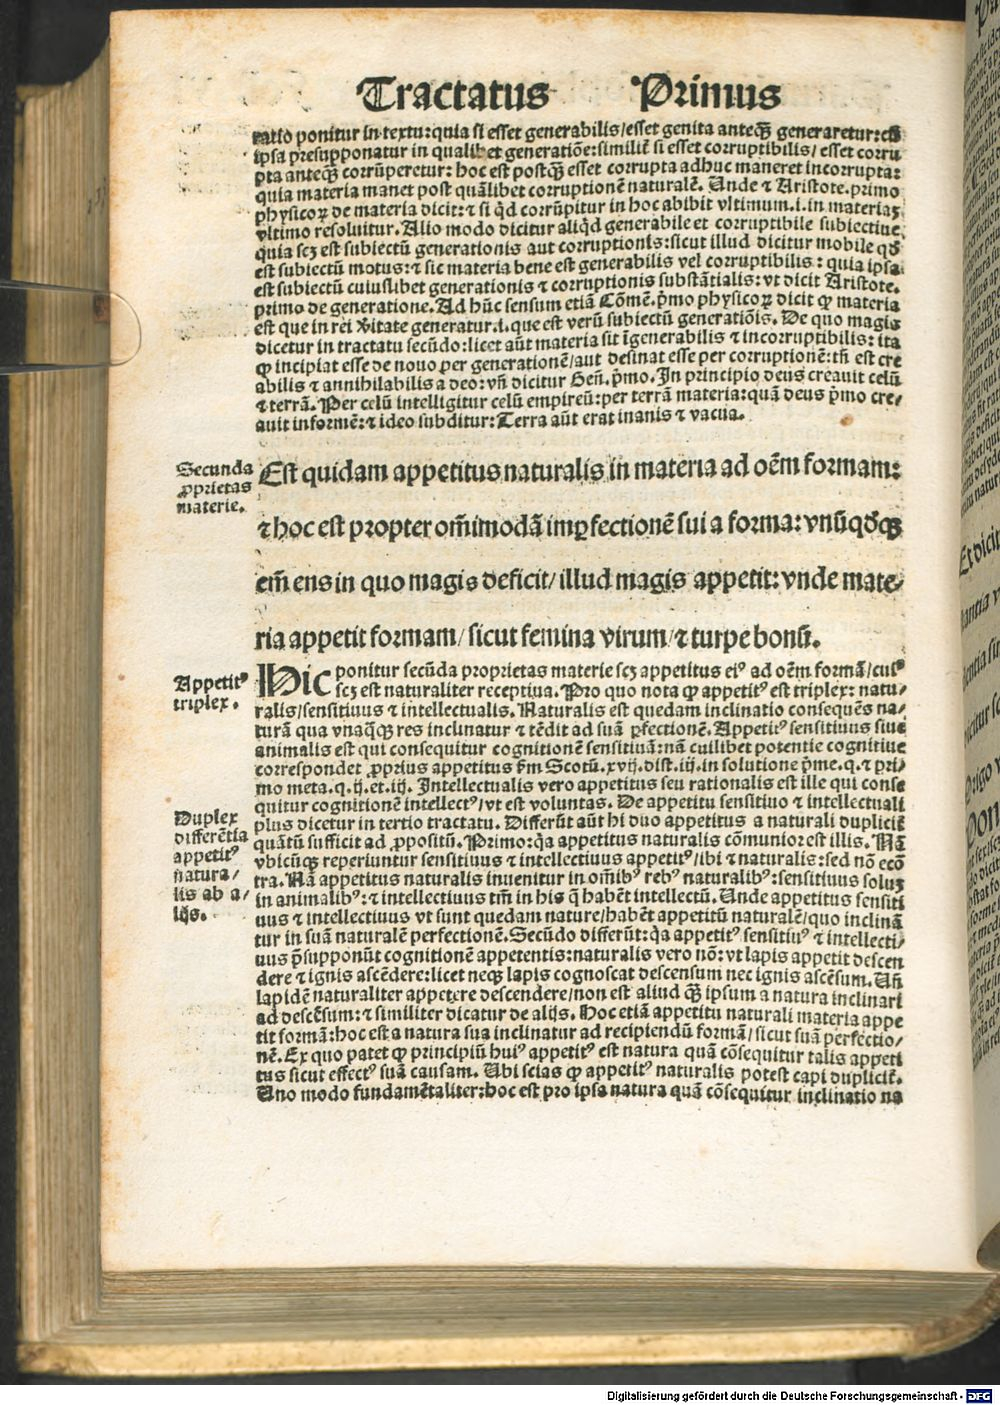 Tractatus Primus
ratio ponitur in textu: quia si esset generabilis/esset genita anteq̃ generaretur: cũ
ipsa presupponatur in qualibet generatiõe: similit̃ si esset corruptibilis/ esset corru
pta anteq̃ corrũperetur: hoc est postq̃ esset corrupta adhuc maneret incorrupta:
quia materia manet post quãlibet corruptionẽ naturalẽ. Unde ⁊ Aristote. primo
physicoꝝ de materia dicit: ⁊ si qͥd corrũpitur in hoc abibit vltimum .i. in materiaꝫ
vltimo resoluitur. Alio modo dicitur aliqͥd generabile et corruptibile subiectiue,
quia scꝫ est subiectũ generationis aut corruptionis: sicut illud dicitur mobile qđ
est subiectũ motus: ⁊ sic materia bene est generabilis vel corruptibilis: quia ipsa
est subiectũ cuiuslibet generationis ⁊ corruptionis substãtialis: vt dicit Aristote.
primo de generatione. Ad hũc sensum etiã Cõmẽ. pͥmo physicoꝝ dicit ꝙ materia
est que in rei v̓itate generatur .i. que est verũ subiectũ generatiõis. De quo magis
dicetur in tractatu secũdo: licet aũt materia sit ĩgenerabilis ⁊ incorruptibilis: ita
ꝙ incipiat esse de nouo per generationẽ/aut desinat esse per corruptionẽ: tñ est cre
abilis ⁊ annihilabilis a deo: vñ dicitur Geñ. pͥmo. In principio deus creauit celũ
⁊ terrã. Per celũ intelligitur celũ empireũ: per terrã materia: quã deus pͥmo cre/
auit informẽ: ⁊ ideo subditur: Terra aũt erat inanis ⁊ vacua.
Secunda
ꝓprietas
materie.
Est quidam appetitus naturalis in materia ad oẽm formam:
⁊ hoc est propter om̃imodã imꝑfectionẽ sui a forma: vnũqđq̃
em̃ ens in quo magis deficit/ illud magis appetit: vnde mate/
ria appetit formam/ sicut femina virum/ ⁊ turpe bonũ.
Appetitꝰ
triplex.
Hic ponitur secũda proprietas materie scꝫ appetitus eiꝰ ad oẽm formã/cuiꝰ
scꝫ est naturaliter receptiua. Pro quo nota ꝙ appetitꝰ est triplex: natu/
ralis/sensitiuus ⁊ intellectualis. Naturalis est quedam inclinatio consequẽs na/
turã qua vnaq̃q̃ res inclinatur ⁊ tẽdit ad suã ꝑfectionẽ. Appetitꝰ sensitiuus siue
animalis est qui consequitur cognitionẽ sensitiuã: nã cuilibet potentie cognitiue
correspondet ꝓprius appetitus fm Scotũ .xvij. dist. iij. in solutione pͥme .q. ⁊ pri/
mo meta. q. ij. et .iij. Intellectualis vero appetitus seu rationalis est ille qui conse
quitur cognitionẽ intellectꝰ/vt est voluntas. De appetitu sensitiuo ⁊ intellectuali
plus dicetur in tertio tractatu. Differũt aũt hi duo appetitus a naturali duplicit̃
Duplex
differẽtia
appetitꝰ
natura/
lis ab a/
lijs.
quãtũ sufficit ad ꝓpositũ. Primo: qͣ appetitus naturalis cõmunior est illis. Nã
vbicũq̃ reperiuntur sensitiuus ⁊ intellectiuus appetitꝰ/ibi ⁊ naturalis: sed nõ ecõ
tra. Nã appetitus naturalis inuenitur in om̃ibꝰ rebꝰ naturalibꝰ: sensitiuus soluꝫ
in animalibꝰ: ⁊ intellectiuus tm̃ in his q̃ habẽt intellectũ. Unde appetitus sensiti
uus ⁊ intellectiuus vt sunt quedam nature/habẽt appetitũ naturalẽ/quo inclinã
tur in suã naturalẽ perfectionẽ. Secũdo differũt: qͣ appetitꝰ sensitiuꝰ ⁊ intellecti/
uus p̃supponũt cognitionẽ appetentis: naturalis vero nõ: vt lapis appetit descen
dere ⁊ ignis ascẽdere: licet neq̃ lapis cognoscat descensum nec ignis ascẽsum. Uñ
lapidẽ naturaliter appetere descendere/non est aliud q̃ ipsum a natura inclinari
ad descẽsum: ⁊ similiter dicatur de alijs. Hoc etiã appetitu naturali materia appe
tit formã: hoc est a natura sua inclinatur ad recipiendũ formã/ sicut suã perfectio/
nẽ. Ex quo patet ꝙ principiũ huiꝰ appetitꝰ est natura quã cõsequitur talis appeti
tus sicut effectꝰ suã causam. Ubi scias ꝙ appetitꝰ naturalis potest capi duplicit̃.
Uno modo fundamẽtaliter: hoc est pro ipsa natura quã cõsequitur inclinatio na
Digitalisierung gefördert durch die Deutsche Forschungsgemeinschaft - DFG